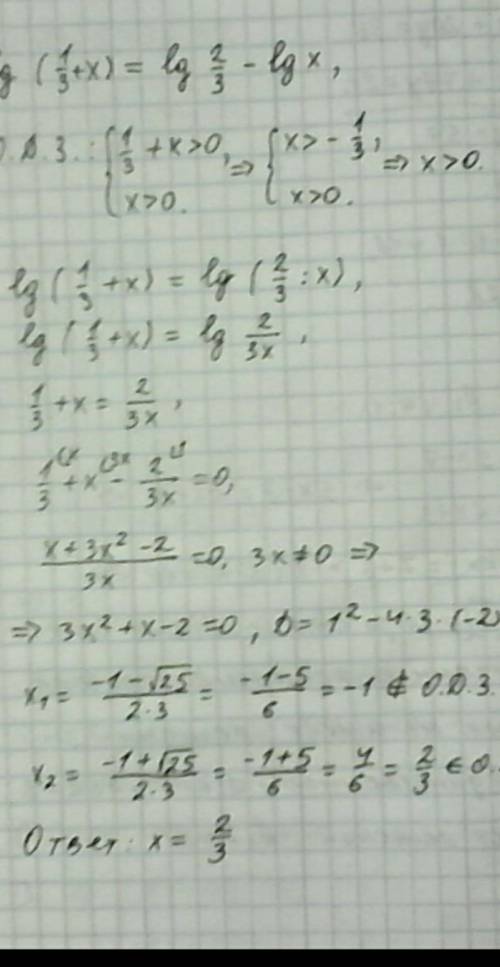 g (1/3+x) = lg 2/3 - lg x,
О.D.З.: {1/3 + x>0, x>0. => {x>-1/3, x>0. => x>0.
lg (1/3 +x) = lg (2/3 : x),
lg (1/3 +x) = lg 2/3x,
1/3 +x = 2/3x,
1/3 + x - 2/3x =0,
x+3x²-2/3x =0, 3x≠0 =>
=> 3x²+x-2=0, D= 1²-4·3·(-2)
x₁= -1-√25/2·3 = -1-5/6 = -1 ∉ O.D.З.
x₂= -1+√25/2·3 = -1+5/6 = 4/6 = 2/3 ∈ O.
Ответ: x= 2/3